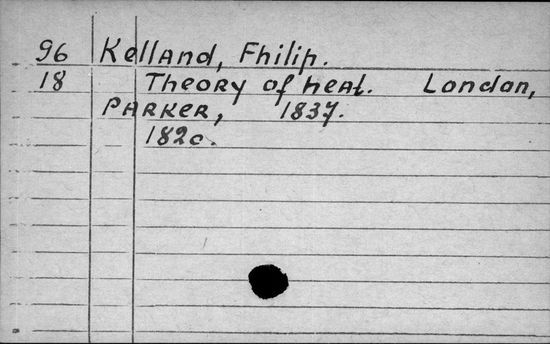 96 Kelland, Fhilip.
18 Theory of heat. London,
PARKER, 1837.
182c.